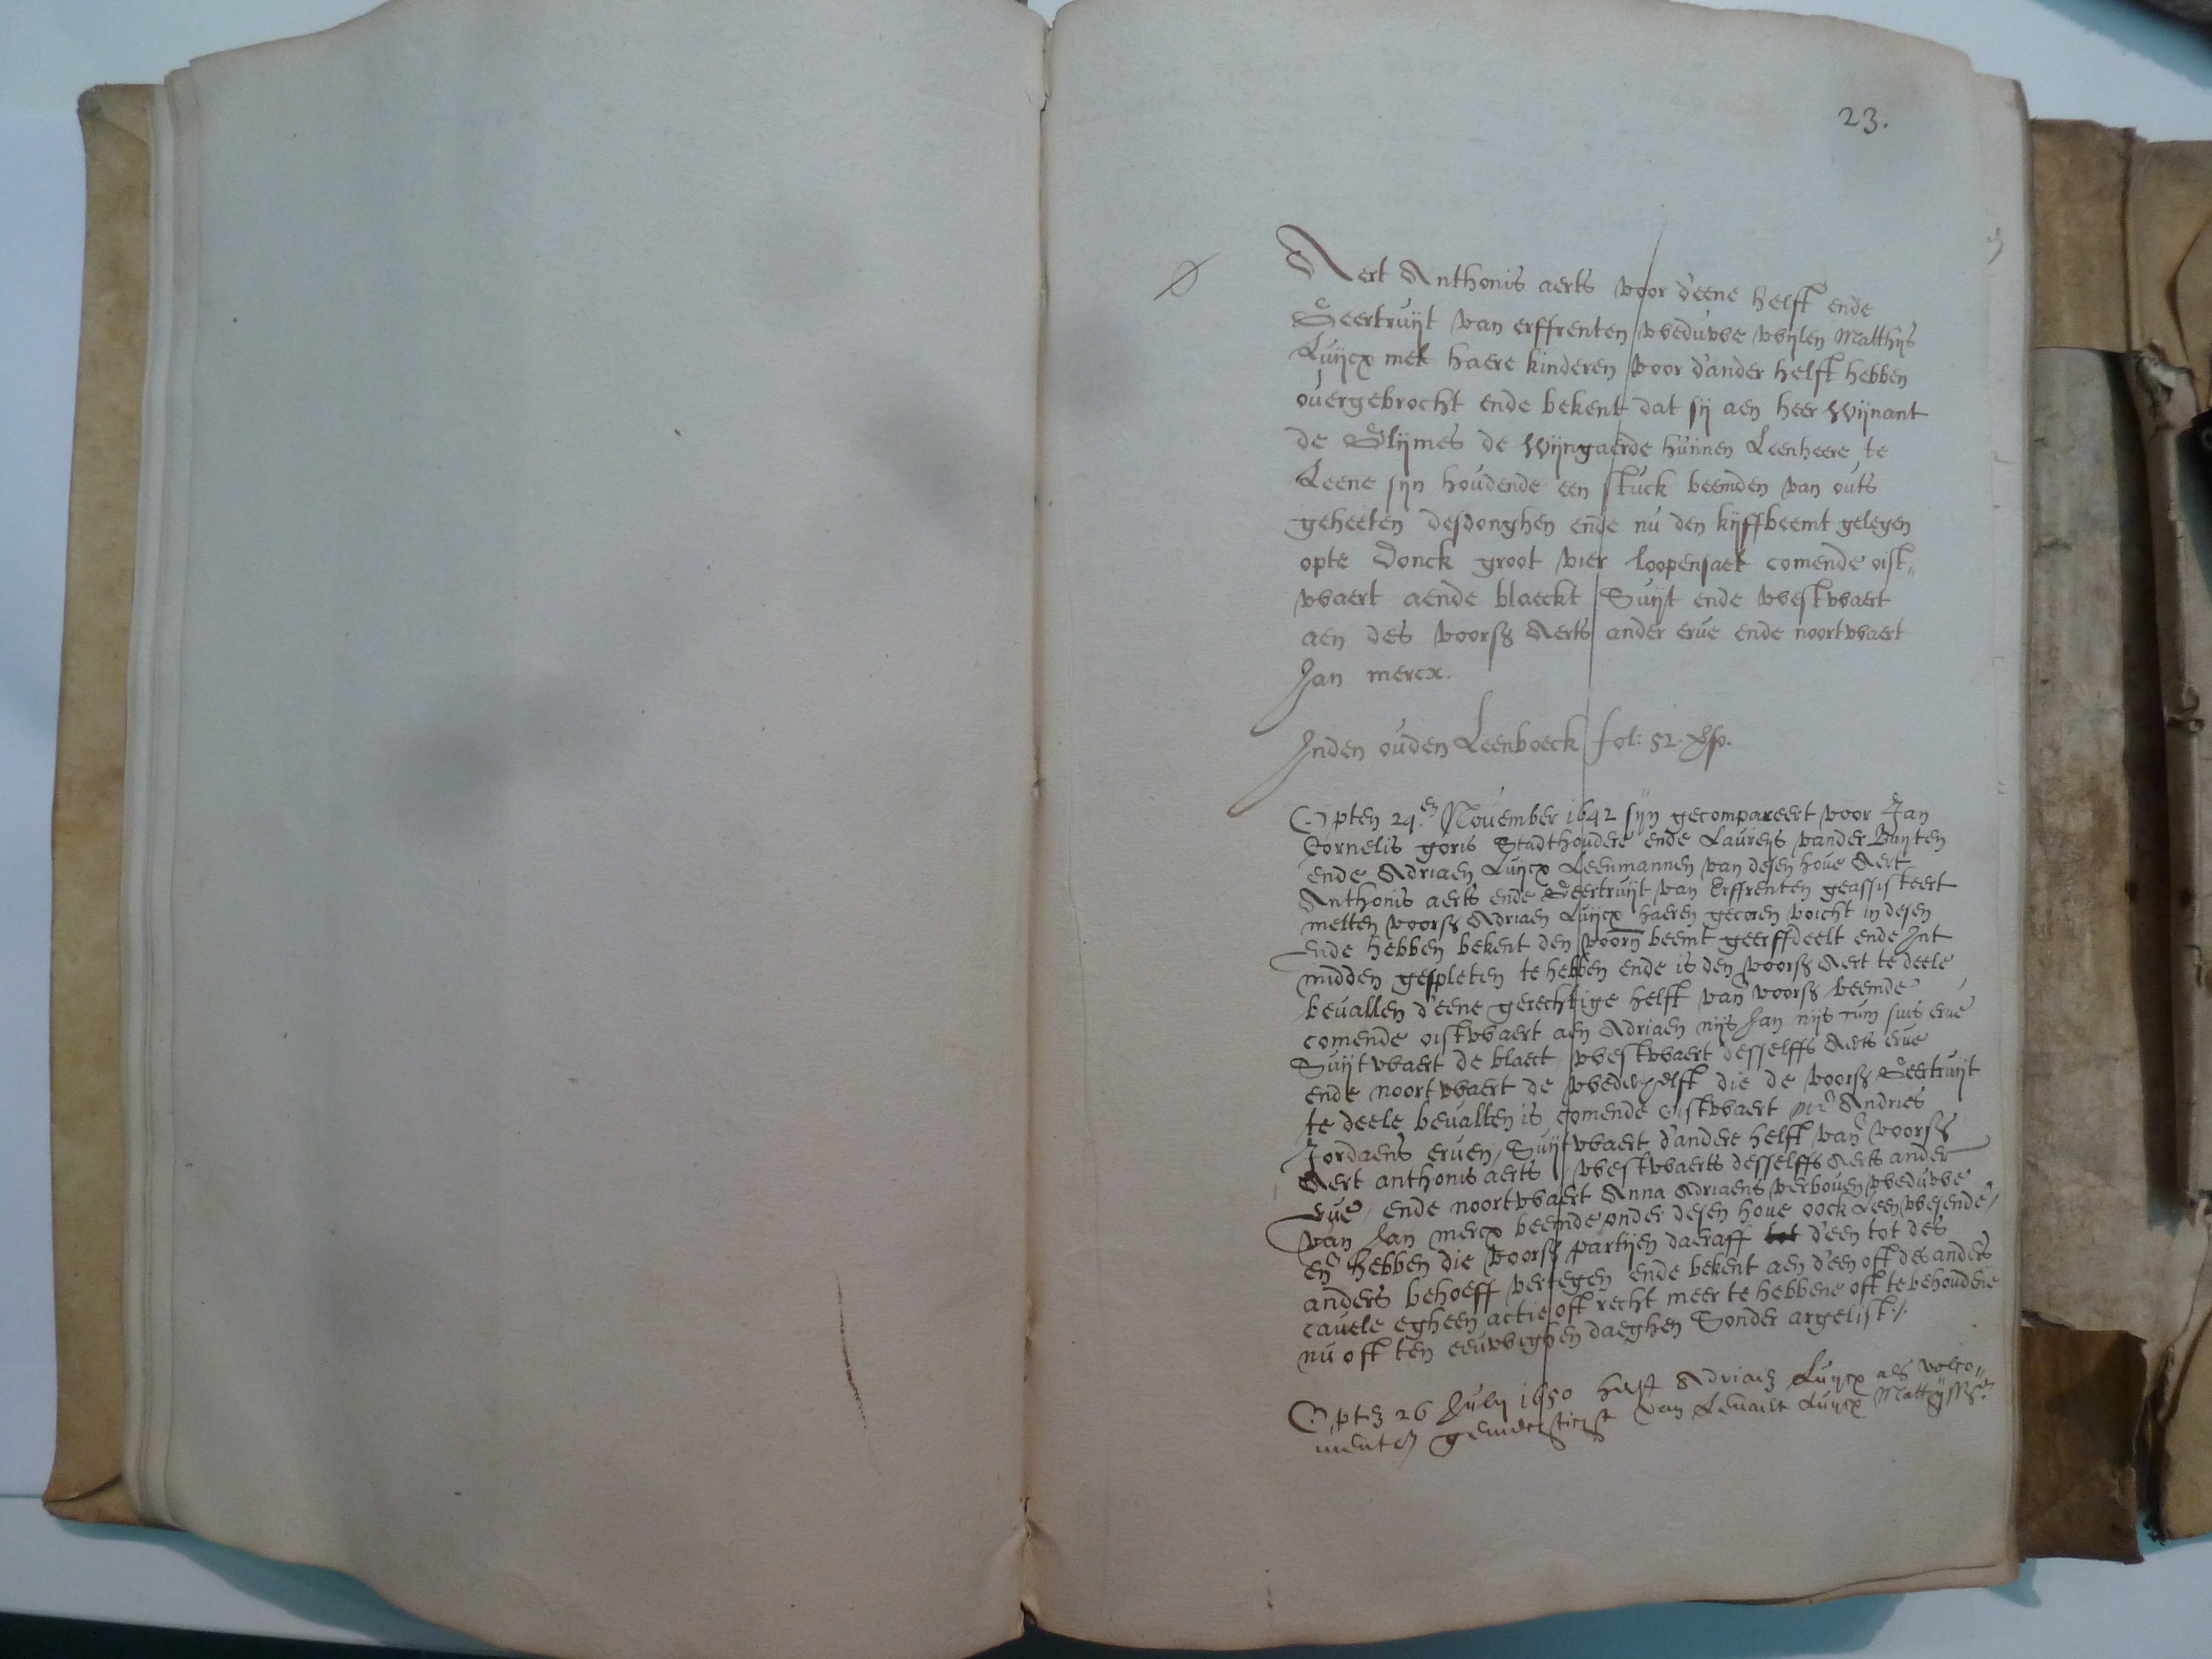 23.
Aert Anthonis aerts voor d'eene helft ende
Geertruijt van erffrenten weduwe wijlen Matthijs
Luijcx met haere kinderen voor d'ander helft hebben
ouergebrocht ende bekent dat sij aen heer Wijnant
de Glijmes de Wijngaerde hunnen Leenheere te
Leene sijn houdende een stuck beemden van outs
geheeten desdonghen ende nu den kijffbeemt gelegen
opte Donck groot vier loopensaet comende oist„
waert aende blaeckt Suijt ende westwaert
aen des voors Aerts ander erue ende noortwaert
Jan mercx.
Inden ouden Leenboeck fol: 52. vso.
Opten 29en Nouember 1642 sijn gecompareert voor Jan
Cornelis goris Stadthoudere ende Laureys vander Buijten
ende Adriaen Luijcx Leenmannen van desen houe Aert
Anthonis aerts ende Geertruijt van Erffrenten geassisteert
metten voors Adriaen Luijcx haeren gecoren voicht in desen
Ende hebben bekent den voorn beemt geerffdeelt ende Int
midden gespleten te hebben ende is den voors Aert te deele
beuallen d'eene gerechtige helft van voors beemde
comende oistwaert aen Adriaen nijs Jan nijs cum suis erue
Suijtwaert de blaect westwaert desselffs Aerts erue
ende noortwaert de wederhelft die de voors Geertruijt
te deele beuallen is comende oistwaert Mr Andries
Jordaens eruen, Suijtwaert d'andere helft van voors
Aert anthonis aerts westwaerts desselffs Aerts ander
erue, ende noortwaert Anna Adriaens verhouen weduwe
van Jan mercx beemde onder desen houe oock Leen wesende,
en hebben die voors partijen daeraff tot d'een tot des
anders behoeff vertegen ende bekent aen d'een oft des anders
cauele egheen actie oft recht meer te hebbene oft te behoudene
nu oft ten eeuwighen daeghen Sonder argelist ./.
Opten 26 July 1650 heeft Adriaen Luijcx als volco„
van Luijcx Mattijss